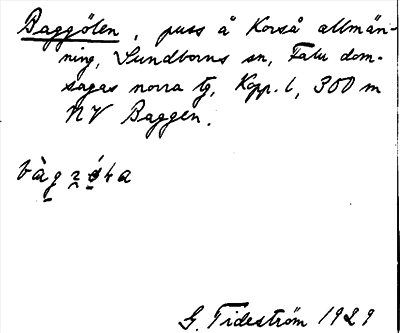 Baggölen, puss å Korså allmän-
ning, Sundborns sn, Falu dom-
sagas norra tg, Kopp. l, 300 m
NV Baggen.
G. Tideström 1929